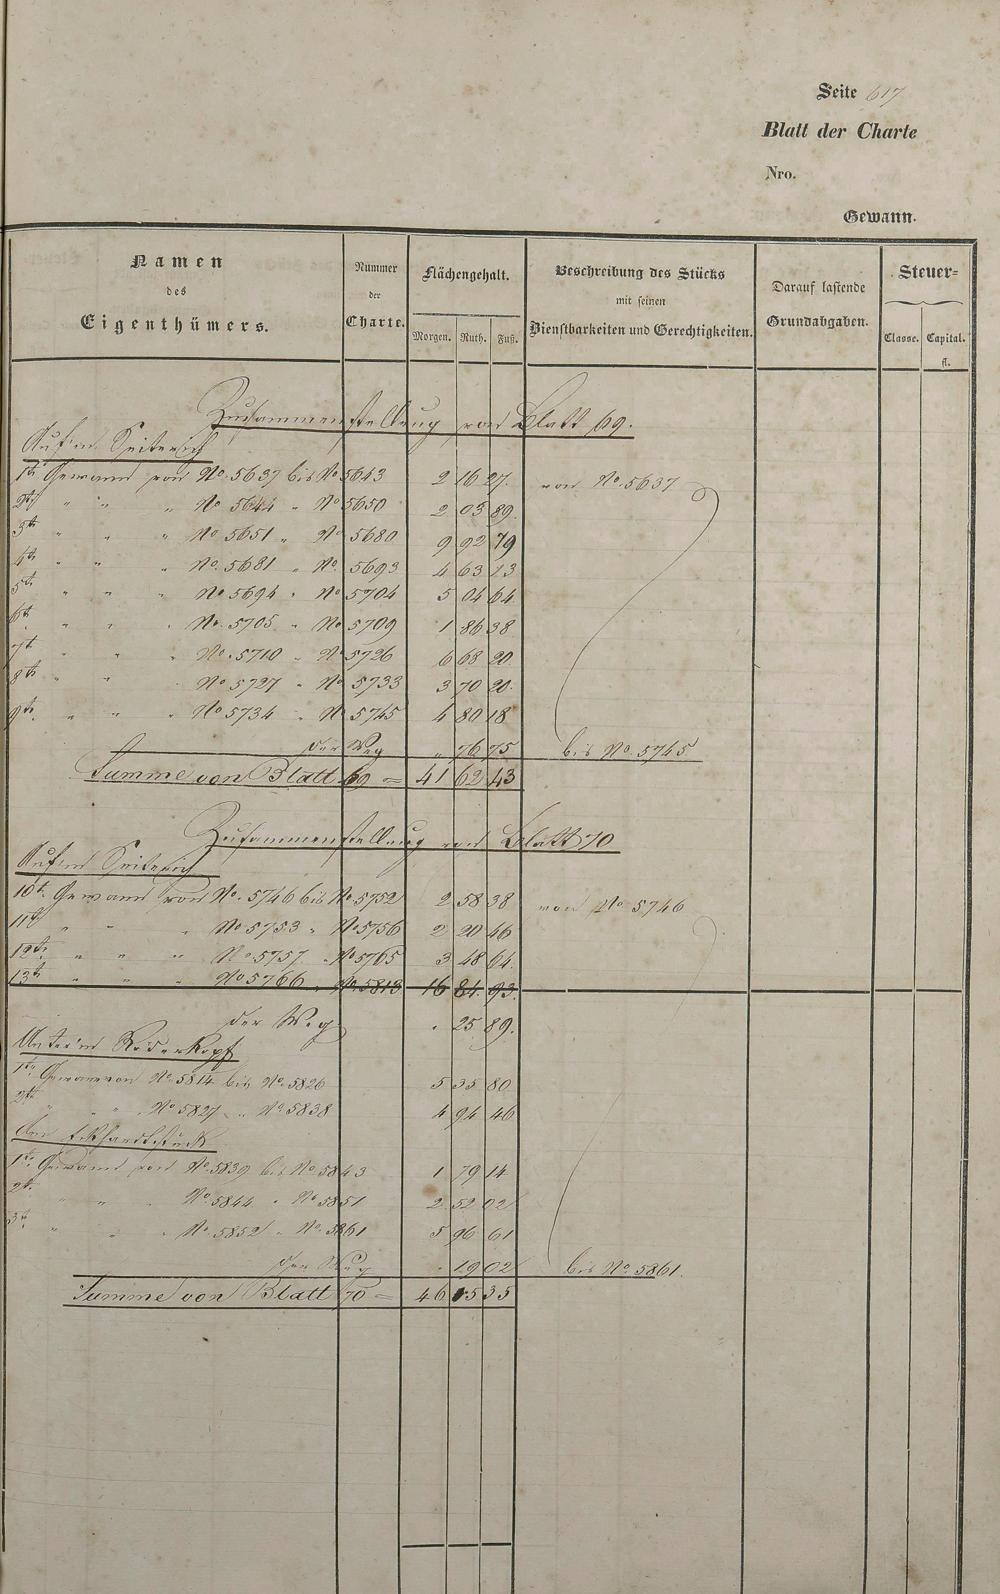 Seite 617
Blatt der Charte
Nro.
Gewann.
Namen des Eigenthümers.
Nummer der Charte.
Flächengehalt.
Morgen. Ruth. Fuß.
Beschreibung des Stücks mit seinen Dienstbarkeiten und Gerechtigkeiten.
Darauf lastende Grundabgaben.
Steuer=
Classe. Capital.
fl.
Zusammenstellung von Blatt 69.
Auf'm Seiterich
1te Gewann von No. 5637 bis No 5643 2 16 27. von No. 5637
2te " " " No 5644 " No 5650 2 03 89.
3te " " " No 5651 " No 5680 9 92 79
4te " " " No. 5681 " No. 5693 4 63 13
5te " " " No 5694 " No 5704 5 04 64.
6te " " " No. 5705 " No 5709 1 86 38
7te " " " No. 5710 " No 5726 6 68 20
8te " " No 5727 " No 5733 3 70 20.
9te " " " No 5734 " N 5745 4 80 18
der Weg " 76 75 bis No. 5745
Summe von Blatt 69 = 41 62 43
Zusammenstellung von Blatt 70
Auf'm Seiterich
10te Gewann von No. 5746 bis No 5752 2 58 38 von No. 5746
11te " " " No 5753 " No 5756 2 20 46
12te " " " No. 5757 " No 5765 3 48 64.
13te " " " No 5766 " No. 5813 16 84. 93.
der Weg " 25 89.
Unter'm Röderkopf
1te Gewann von No. 5814 bis No. 5826 5 35 80
2te " " " No 5827 " No 5838 4 94 46
1te Gewann von No. 5839 bis No 5843 1 79 14
2te " " " No. 5844 " No 5851 2 52 02
3te " " " No 5852 " No. 5861 5 96 61
der Weg " 19 02 bis No. 5861.
Summe von Blatt 70 = 46 15 35